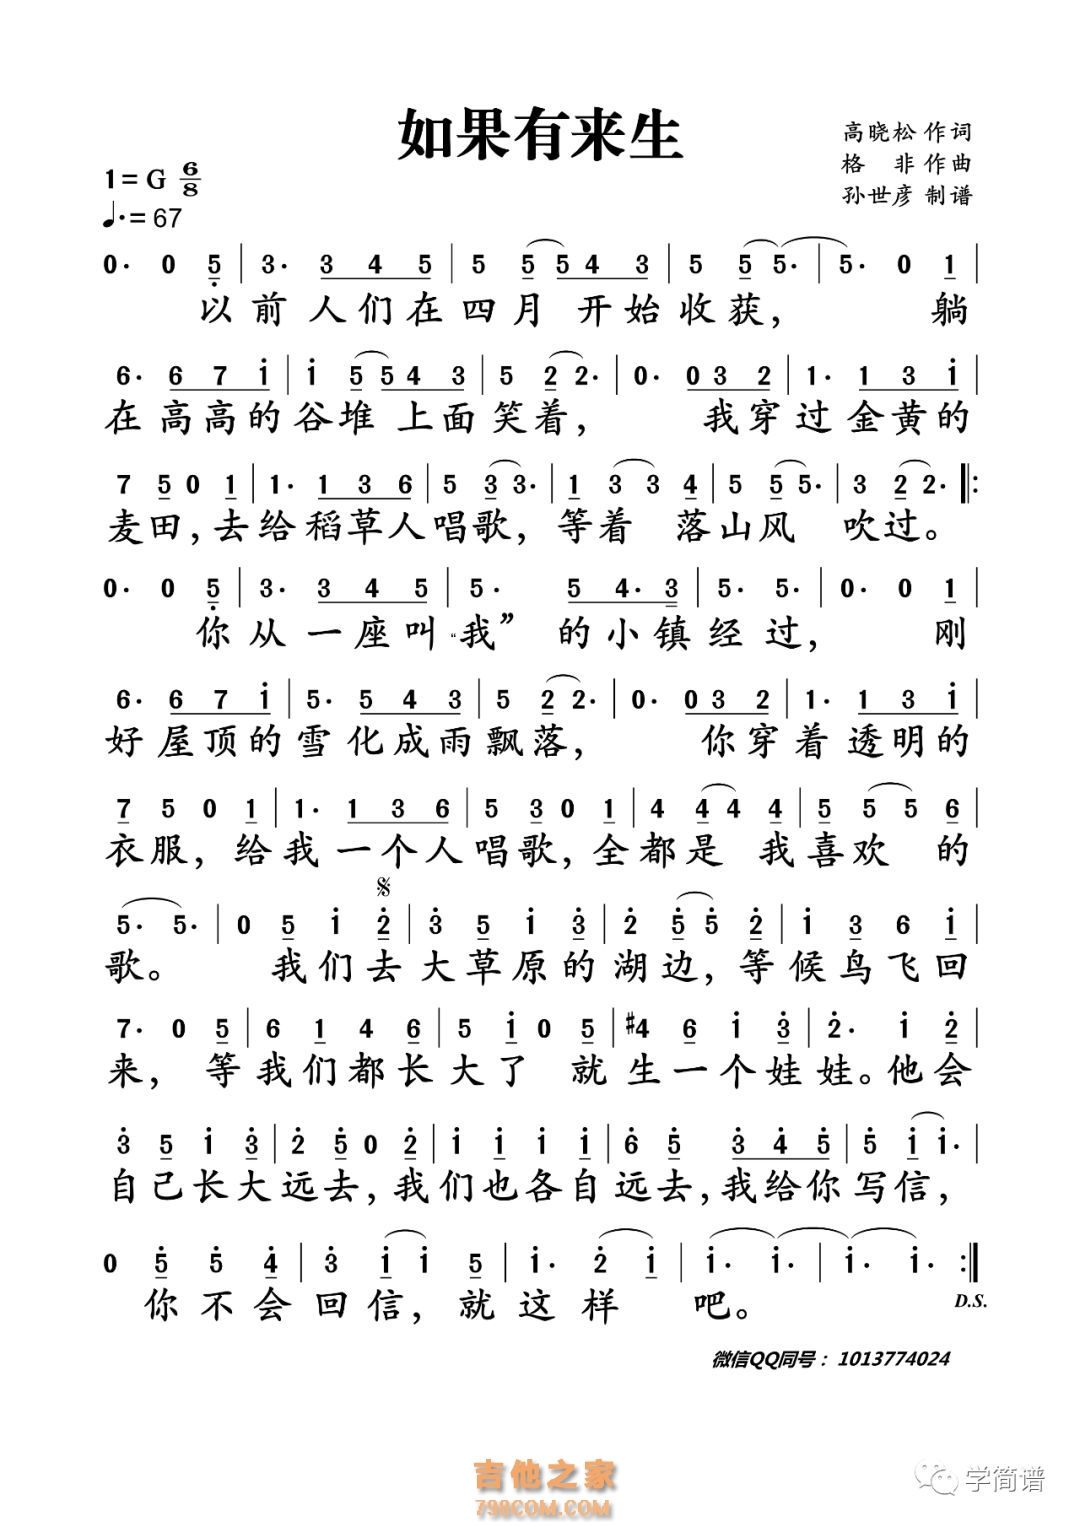 如果有来生
高晓松 作词
格 非 作曲
孙世彦 制谱
1=G 6/8
♩.=67
0· 0 5̣ | 3· 3 4 5 | 5 5 5 4 3 | 5 5 5· | 5· 0 1 |
以前人们在四月 开始收获， 躺
6· 6 7 i | i 5 5 4 3 | 5 2 2· | 0· 0 3 2 | 1· 1 3 i |
在高高的谷堆上面笑着， 我穿过金黄的
7 5 0 1 | 1· 1 3 6 | 5 3 3· | 1 3 3 4 | 5 5 5· | 3 2 2· ‖:
麦田，去给稻草人唱歌，等着 落山风 吹过。
0· 0 5̣ | 3· 3 4 5 | 5· 5 4· 3 | 5· 5· | 0· 0 1 |
你从一座叫“我”的小镇经过， 刚
6· 6 7 i | 5· 5 4 3 | 5 2 2· | 0· 0 3 2 | 1· 1 3 i |
好屋顶的雪化成雨飘落， 你穿着透明的
7 5 0 1 | 1· 1 3 6 | 5 3 0 1 | 4 4 4 4 | 5 5 5 6 |
衣服，给我一个人唱歌，全都是 我喜欢 的
𝄋
5· 5· | 0 5 i 2̇ | 3̇ 5 i 3̇ | 2̇ 5̇ 5̇ 2̇ | i 3̇ 6 i |
歌。 我们去大草原的湖边，等候鸟飞回
7· 0 5 | 6 1 4 6 | 5 i 0 5 | #4 6 i 3̇ | 2̇· i 2̇ |
来， 等我们都长大了 就生一个娃娃。他会
3̇ 5 i 3̇ | 2̇ 5̇ 0 2̇ | i i i i | 6̇ 5̇ 3̇ 4̇ 5̇ | 5̇ i i· |
自己长大远去，我们也各自远去，我给你写信，
0 5̇ 5̇ 4̇ | 3̇ i i 5 | i· 2̇ i | i· i· | i· i· :‖
你不会回信，就这样 吧。
D.S.
微信QQ同号：1013774024
吉他之家
798COM.COM
学简谱